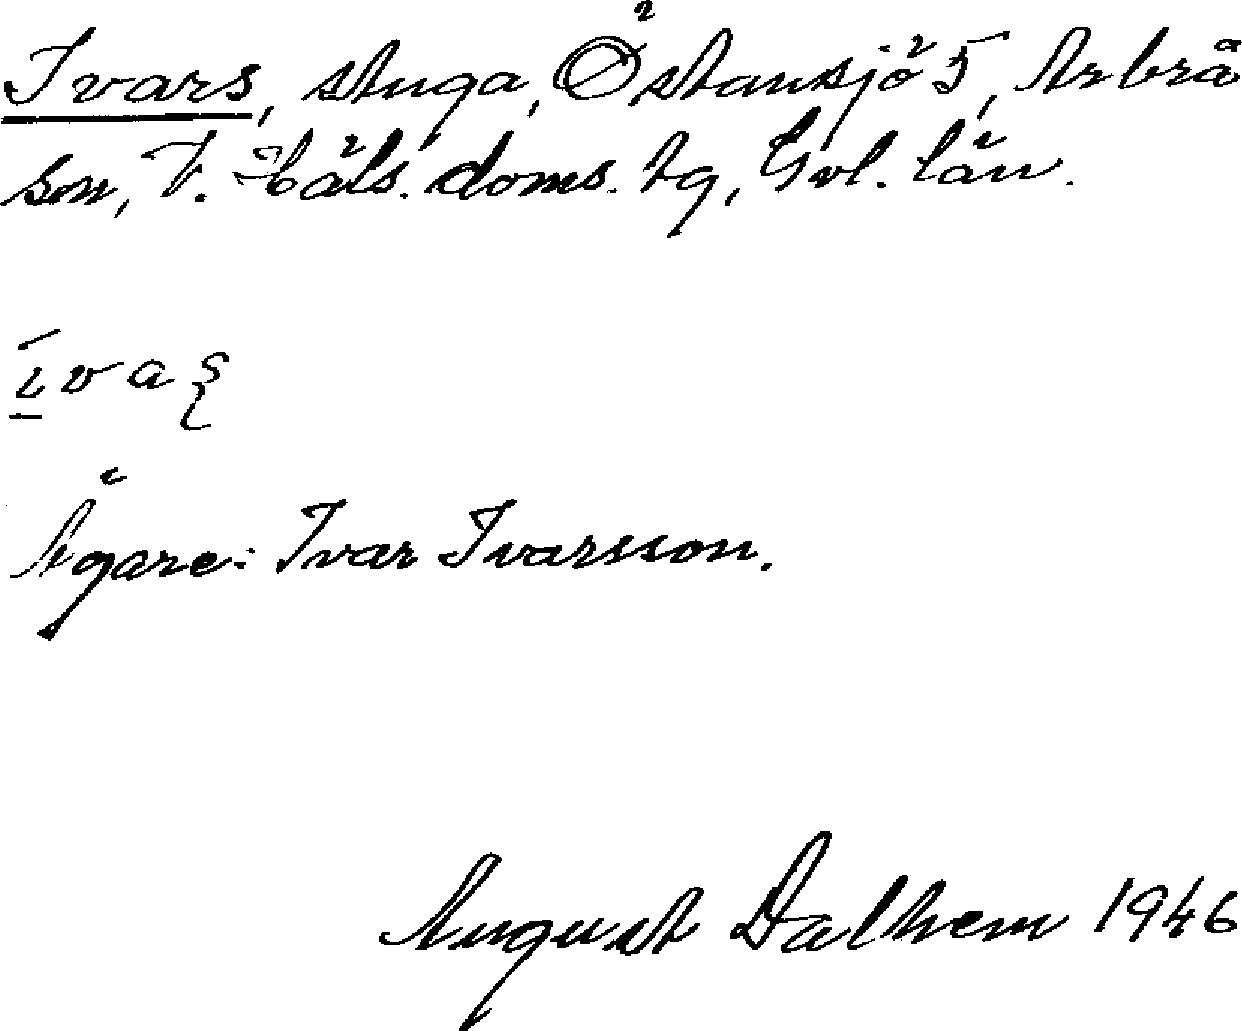 Ivars, stuga, Östansjö 5, Arbrå
sn, V. Häls. doms. tg, Gvl. län.
ivaʂ
Ägare: Ivar Ivarsson.
August Dalhem 1946